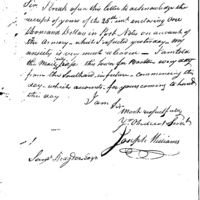 Sir, I made open this letter to acknowledge the
receipt of yours of the 25th inst enclosing One
thousand Dollars in Post Notes on account of
the money, which I expected yesterday, my
anxiety is very much relieved — I am told
the Mail Stage this Town for Boston every day
from this Southard in future, commencing this
day, which accounts for yours coming to hand
this day
I am Sir
Most respectfully
Yr Obedient Servt
Joseph Williams